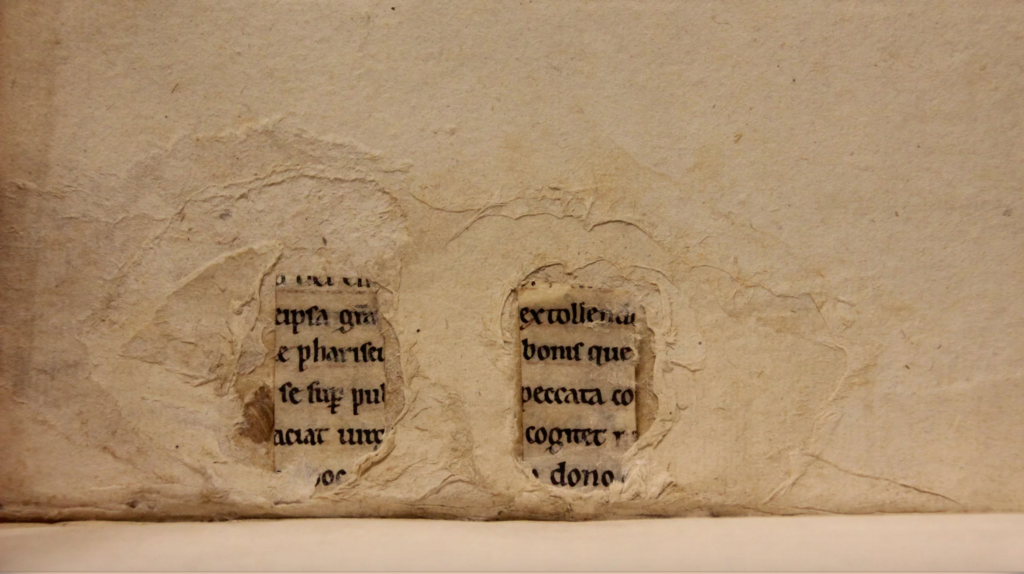 ipsa gra
e pharisei
se sup pub
aciat
hoc
extollend
bonis que
peccata co
cogitet
dono